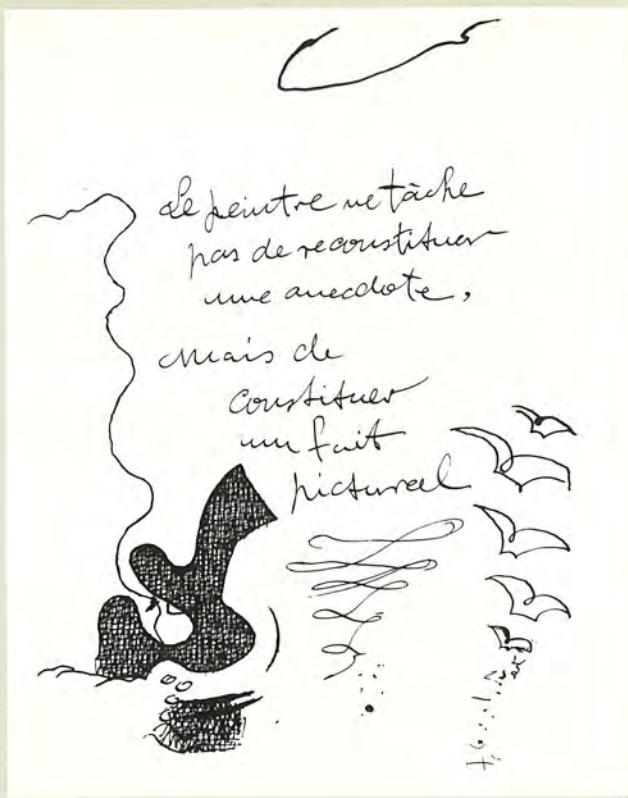 Le peintre ne tâche
pas de reconstituer
une anecdote,
mais de
constituer
un fait
pictural